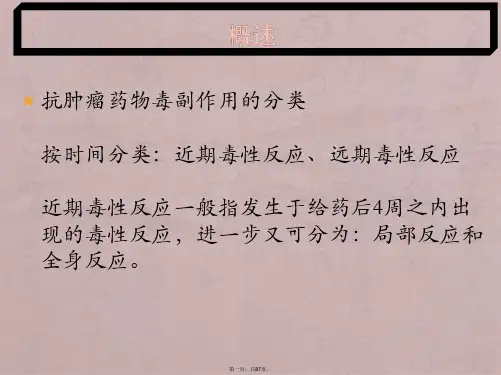 概述
抗肿瘤药物毒副作用的分类
按时间分类：近期毒性反应、远期毒性反应
近期毒性反应一般指发生于给药后4周之内出
现的毒性反应，进一步又可分为：局部反应和
全身反应。